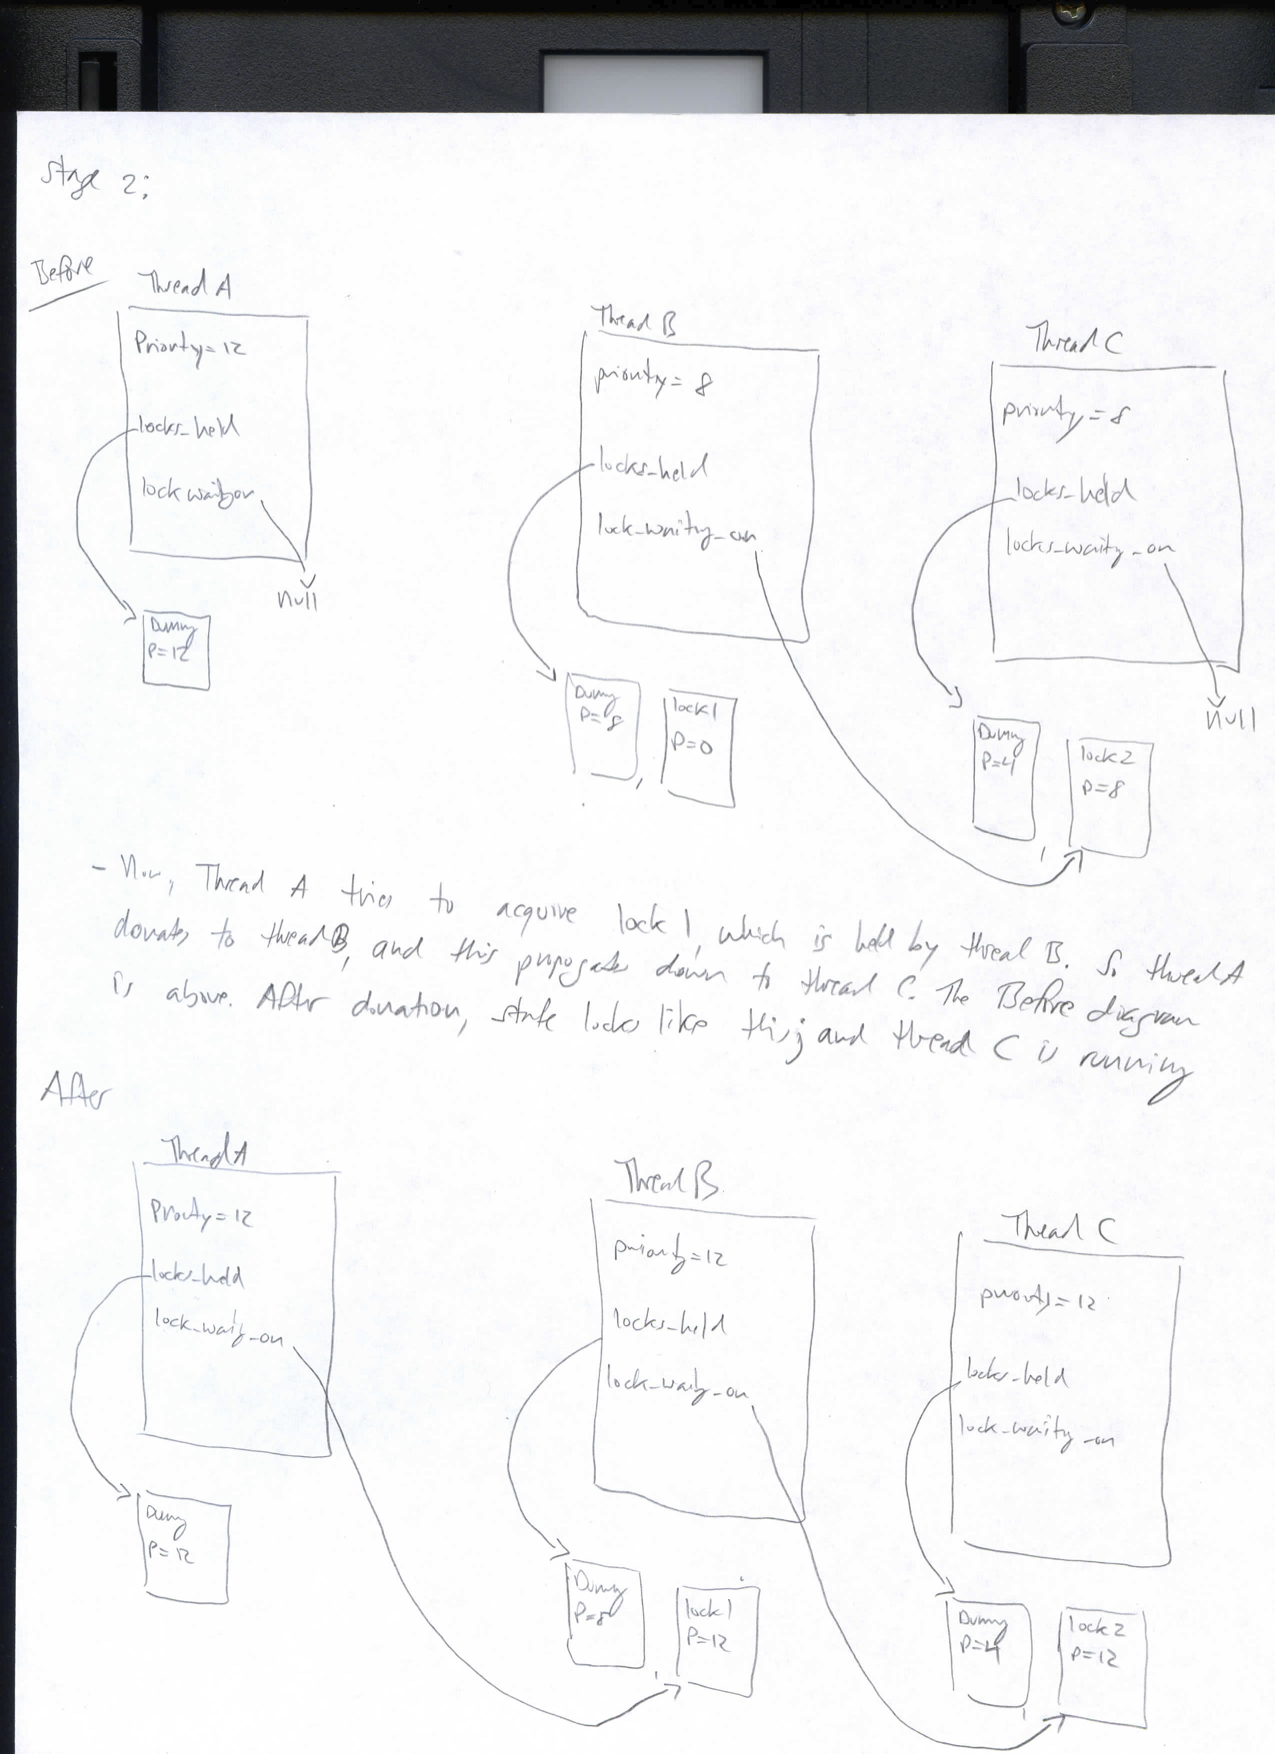 Stage 2;
Before
Thread A
Priority = 12
locks_held
lock waiting on
null
Dummy
P=12
Thread B
priority = 8
locks_held
lock_waiting_on
Dummy
P=8
lock1
P=0
Thread C
priority = 8
locks_held
locks_waiting_on
null
Dummy
P=4
lock2
P=8
- Now, Thread A tries to acquire lock 1, which is held by thread B. So thread A
donates to thread B, and this propogates down to thread C. The Before diagram
is above. After donation, state looks like this; and thread C is running
After
Thread A
Priority = 12
locks_held
lock_waiting_on
Dummy
P=12
Thread B
priority = 12
locks_held
lock_waiting_on
Dummy
P=8
lock1
P=12
Thread C
priority = 12
locks_held
lock_waiting_on
Dummy
P=4
lock2
P=12